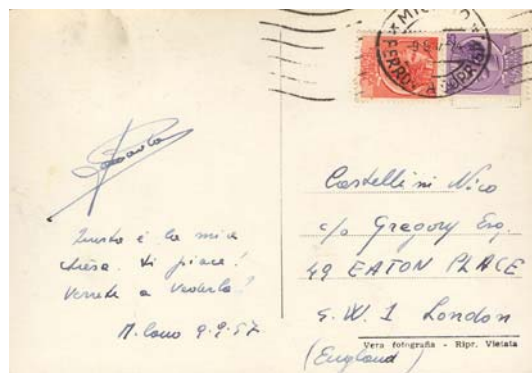 MILANO
FERROVIA
Questa è la mia
chiesa. Ti piace?
Verrete a vederla!
Milano 9.9.57
Castellini Nico
c/o Gregory Esq.
49 EATON PLACE
S.W.1 London
(England)
Vera fotografia - Ripr. Vietata